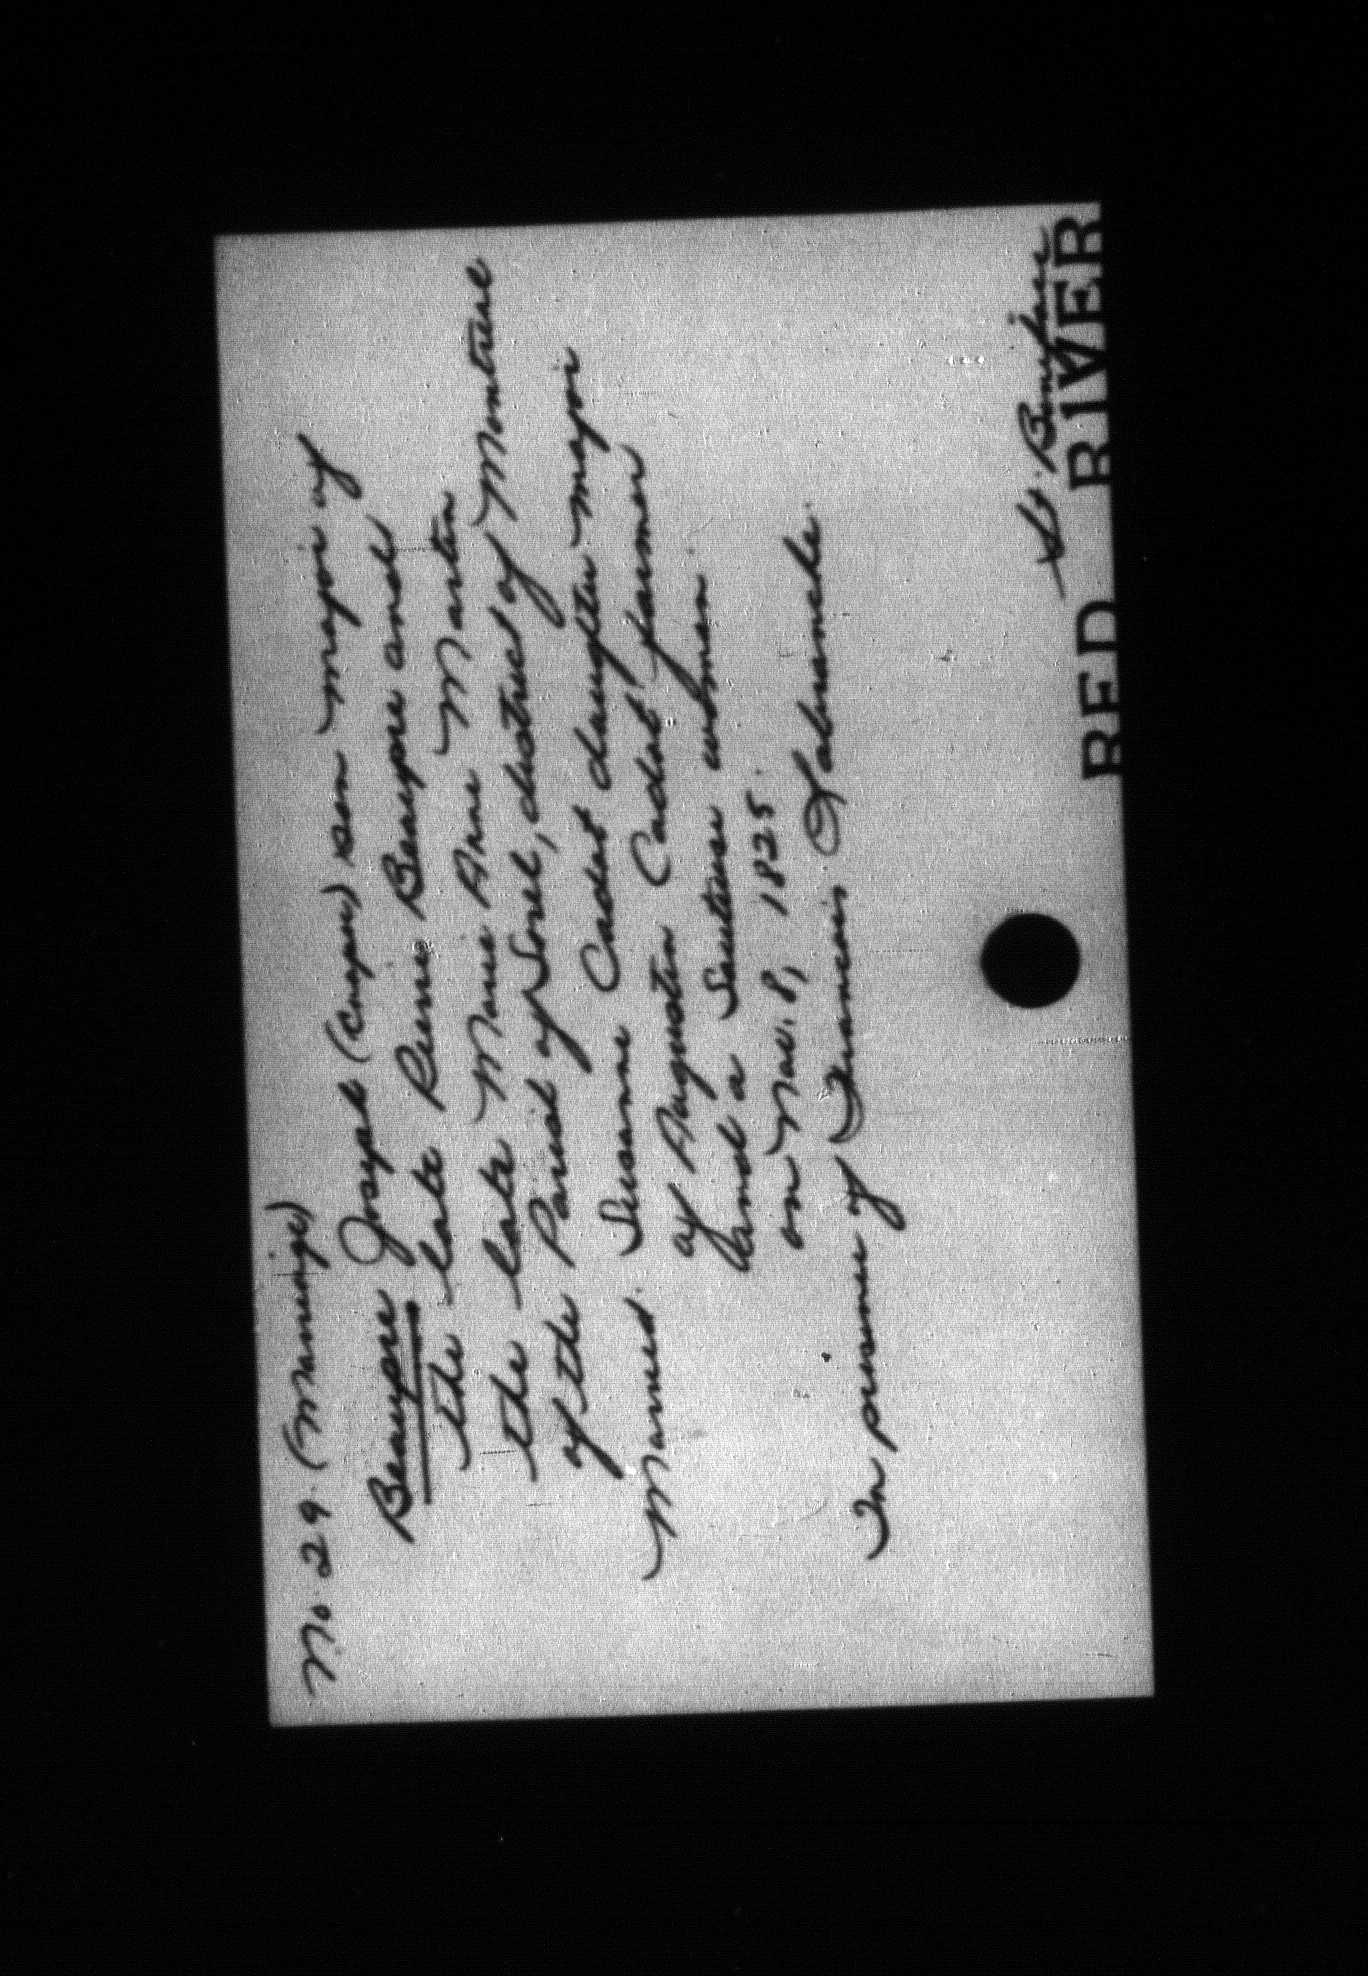 No. 29. (Marriage)
Beaupre Joseph (Cooper) son majeur of
the late Pierre Beaupre and
the late Marie Anne Martin
of the Parish of Sorel, district of Montreal
Married. Susanne Cadot daughter majeur
of Augustin Cadot, farmer
and a Sauteuse woman.
on Nov. 8, 1825.
In presence of Francois Labranche.
St. Boniface
RED RIVER